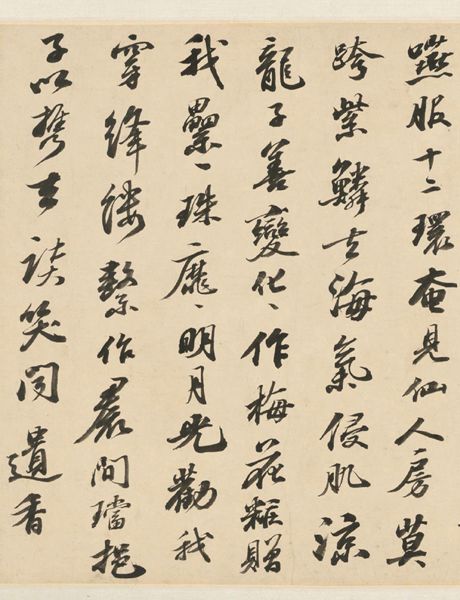 嚥服十二環奄見仙人房莫
跨紫鱗去海氣侵肌涼
龍子善變化〻作梅花糚贈
我纍〻珠靡〻明月光勸我
穿絳縷繫作裠間璫挹
子以攜去談笑聞遺香